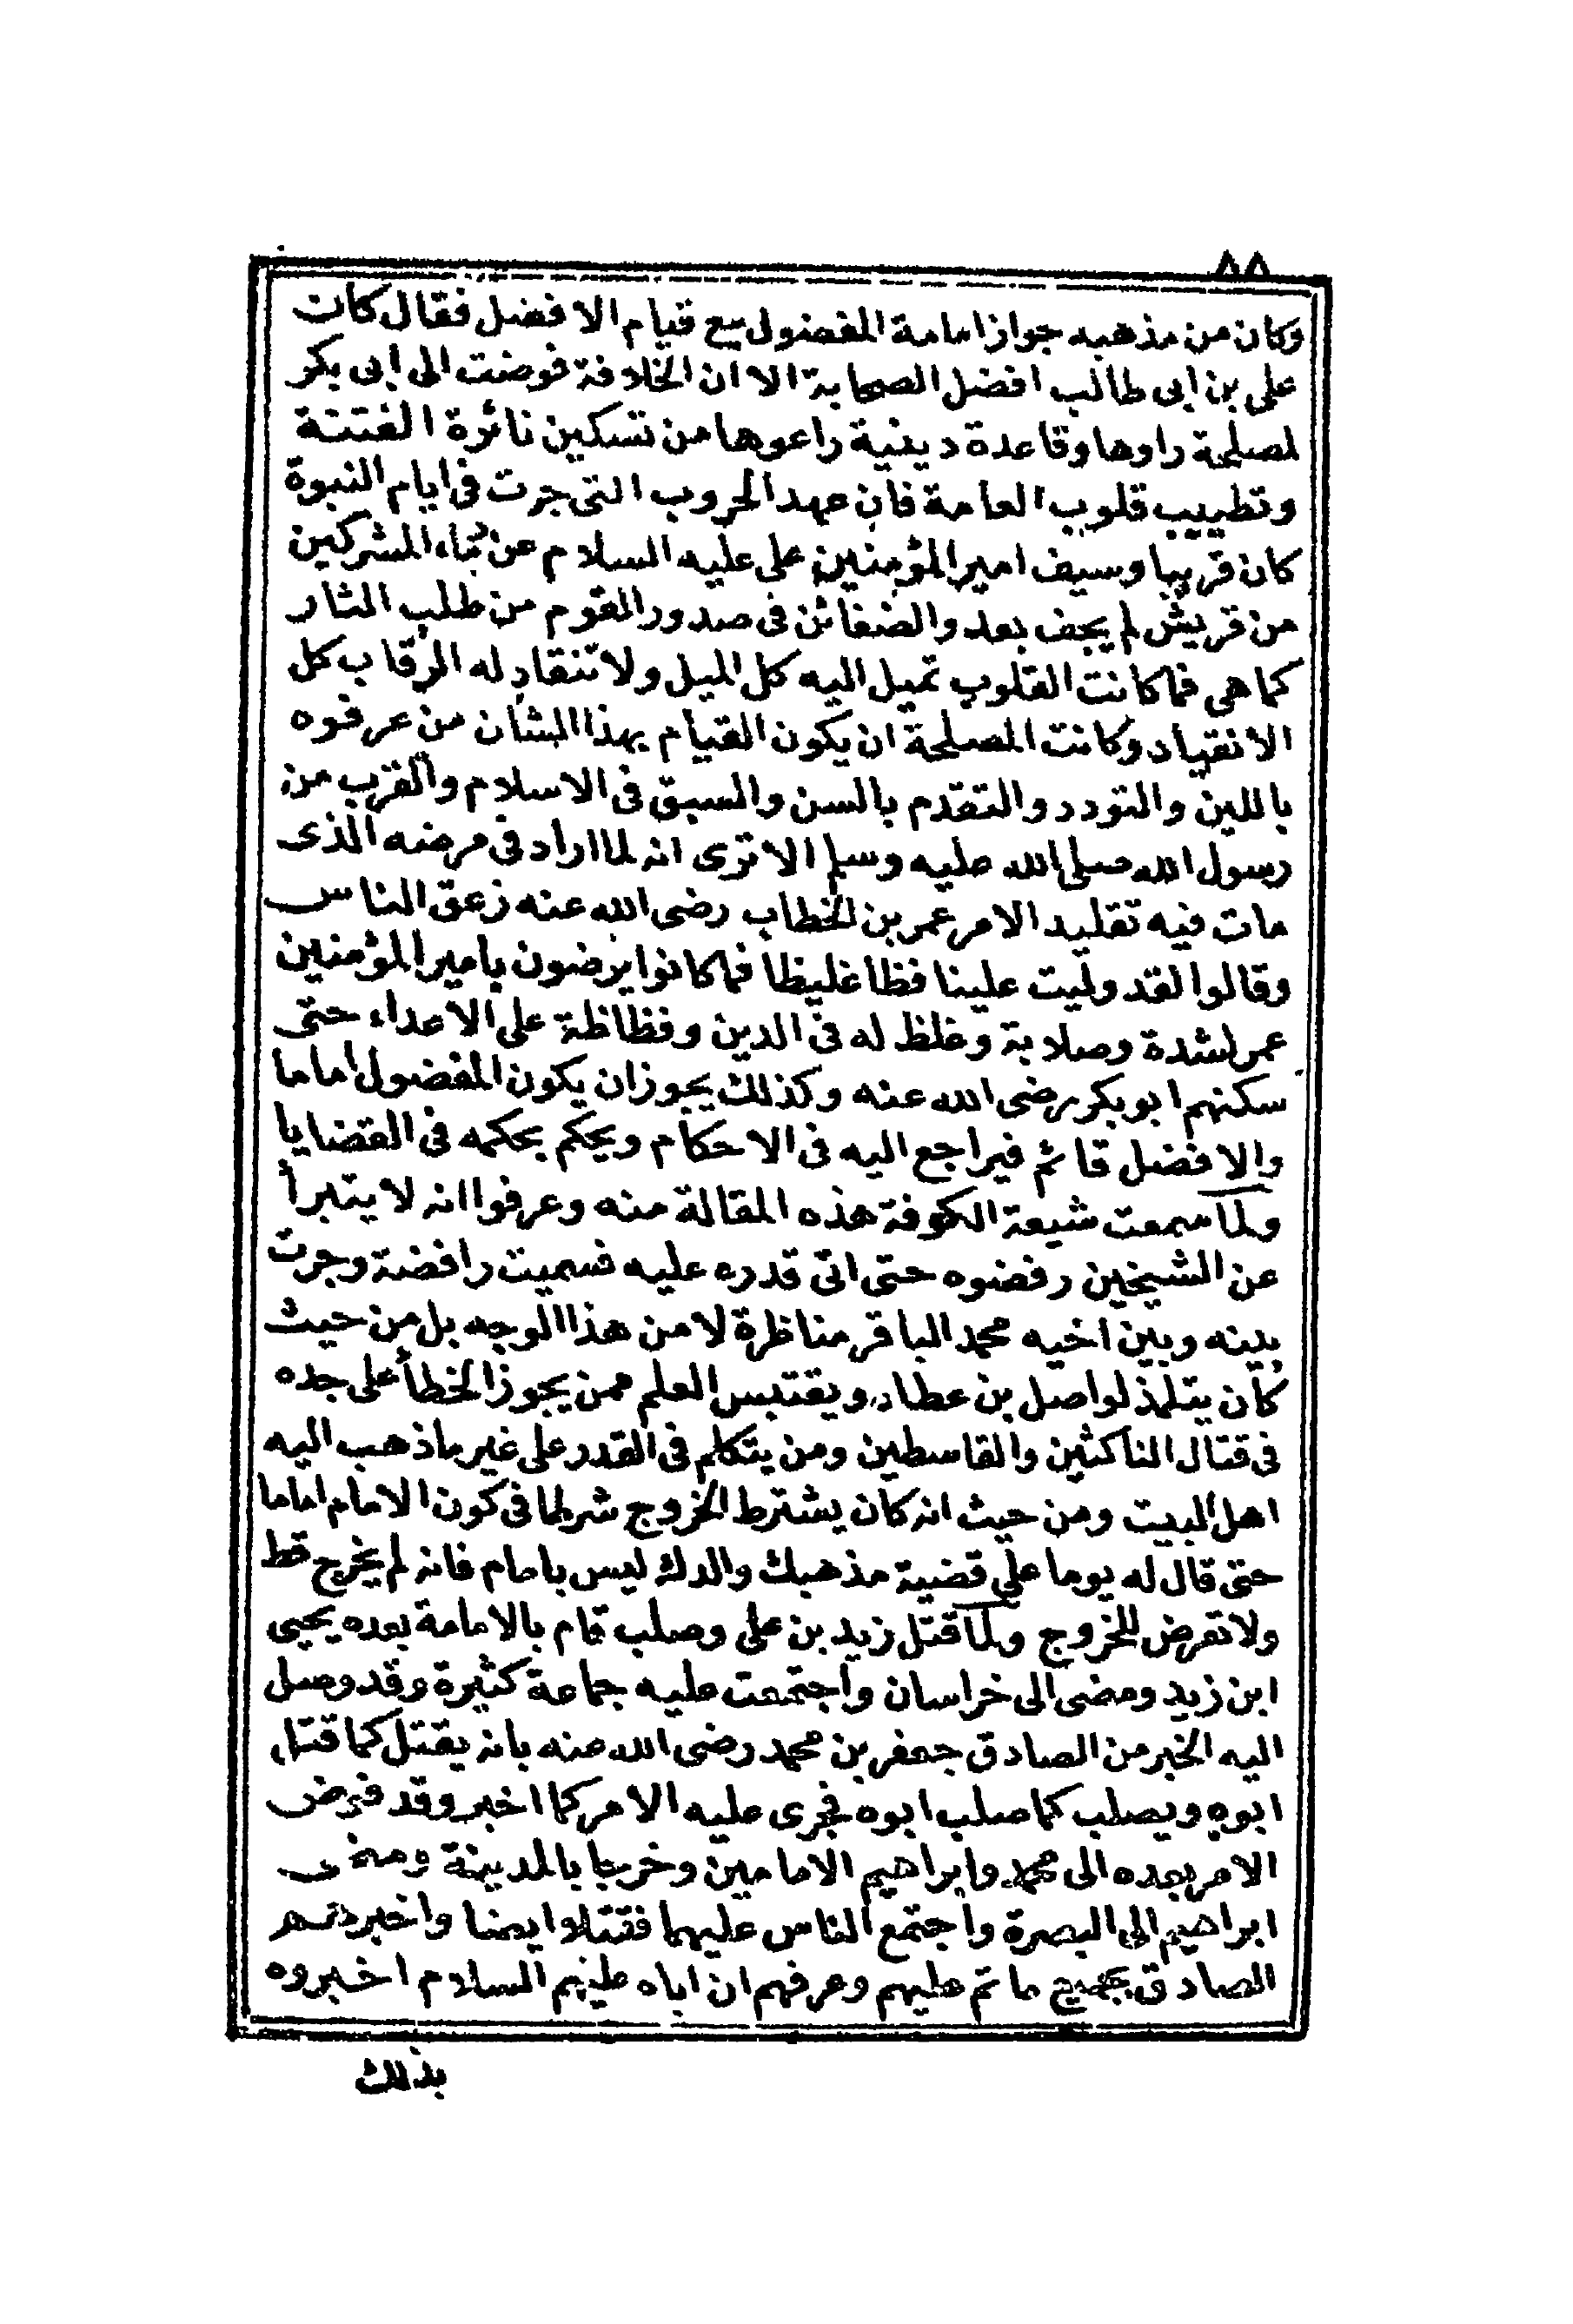 ٨٨
وكان من مذهبه جواز امامة المفضول مع قيام الافضل فقال كان
على بن ابى طالب افضل الصحابة الا ان الخلافة فوضت الى ابى بكر
لمصلحة راوها وقاعدة دينية راعوها من تسكين نائرة الفتنة
وتطييب قلوب العامة فان عهد الحروب التى جرت فى ايام النبوة
كان قريبا وسيف امير المؤمنين على عليه السلام عن دماء المشركين
من قريش لم يجف بعد والضغائن فى صدور القوم من طلب الثار
كما هى فما كانت القلوب تميل اليه كل الميل ولا تنقاد له الرقاب كل
الانقياد وكانت المصلحة ان يكون القيام بهذا الشان من عرفوه
باللين والتودد والتقدم بالسن والسبق فى الاسلام والقرب من
رسول الله صلى الله عليه وسلم الا ترى انه لما اراد فى مرضه الذى
مات فيه تقليد الامر عمر بن الخطاب رضى الله عنه زعق الناس
وقالوا لقد وليت علينا فظا غليظا فما كانوا يرضون بامير المؤمنين
عمر لشدة وصلابة وغلظ له فى الدين وفظاظة على الاعداء حتى
سكنهم ابو بكر رضى الله عنه وكذلك يجوز ان يكون المفضول اماما
والافضل قائم فيراجع اليه فى الاحكام ويحكم بحكمه فى القضايا
ولما سمعت شيعة الكوفة هذه المقالة منه وعرفوا انه لا يتبرأ
عن الشيخين رفضوه حتى اتى قدره عليه فسميت رافضة وجرت
بينه وبين اخيه محمد الباقر مناظرة لا من هذا الوجه بل من حيث
كان يتلمذ لواصل بن عطاء ويقتبس العلم ممن يجوز الخطأ على جده
فى قتال الناكثين والقاسطين ومن يتكلم فى القدر على غير ماذهب اليه
اهل البيت ومن حيث انه كان يشترط الخروج شرطا فى كون الامام اماما
حتى قال له يوما على قضية مذهبك والدك ليس بامام فانه لم يخرج قط
ولا تعرض للخروج ولما قتل زيد بن على وصلب قام بالامامة بعده يحيى
ابن زيد ومضى الى خراسان واجتمعت عليه جماعة كثيرة وقد وصل
اليه الخبر من الصادق جعفر بن محمد رضى الله عنه بانه يقتل كما قتل
ابوه ويصلب كما صلب ابوه فجرى عليه الامر كما اخبر وقد فوض
الامر بعده الى محمد وابراهيم الامامين وخرجا بالمدينة ومضى
ابراهيم الى البصرة واجتمع الناس عليهما فقتلا وايضا واخبرهم
الصادق بجميع ما تم عليهم وعرفهم ان اباه عليهم السلام اخبروه
بذلك